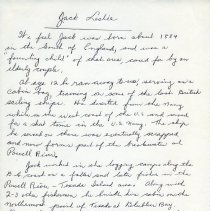 Jack Leslie
We feel Jack was born about 1884
in the South of England, and was a
foundling child of that area, cared for by an
elderly couple.
At age 12 he ran away to sea, serving as a
cabin boy, training on some of the last British
sailing ships. He deserted from the Navy
while on the west coast of the U.S. and served
for a short time in the U.S. Navy. The ships
he served on there was eventually scrapped
and now forms part of the breakwater at
Powell River.
Jack worked in the logging camps along the
B.C. coast as a faller and later fished in the
Powell River - Texada Island area. Along with
2-3 other fishermen, he
northernmost point of Texada at Blubber Bay,